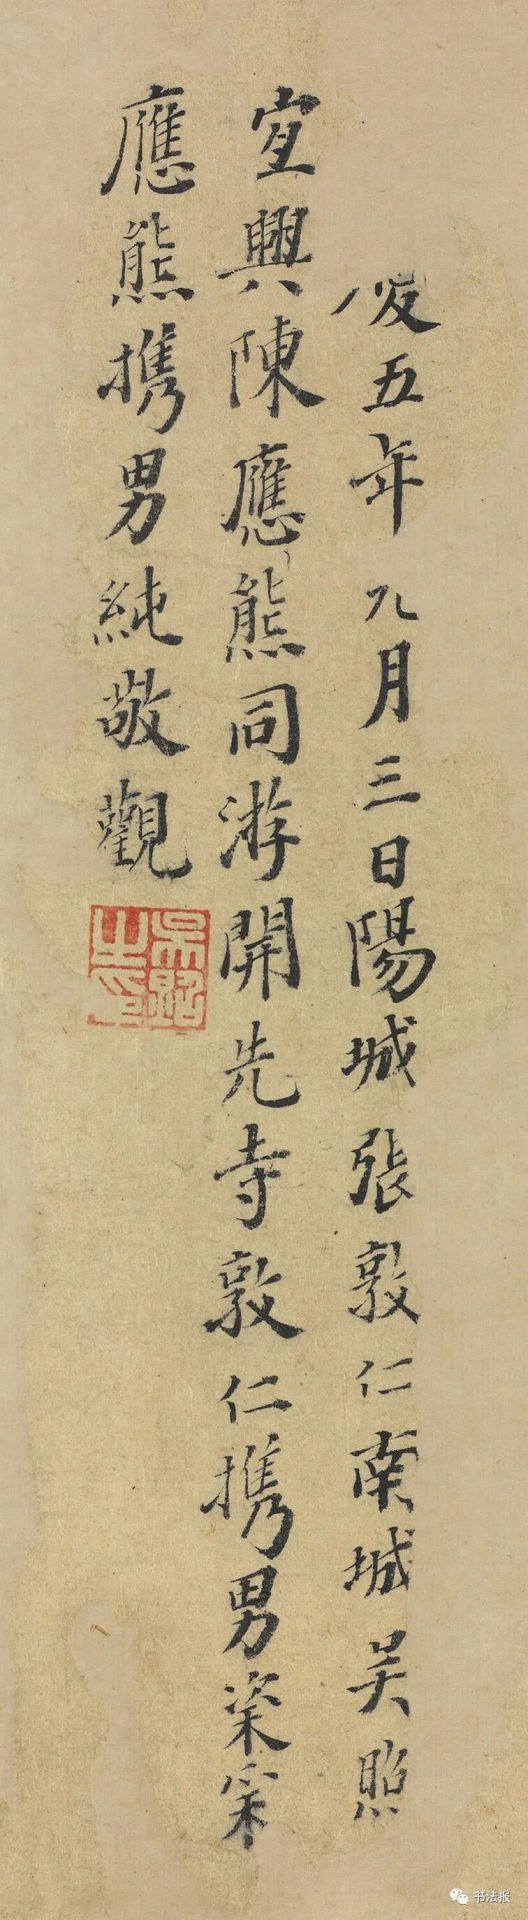 五年九月三日陽城張敦仁南城吴照
宜興陳應熊同游開先寺敦仁攜男
應熊攜男純敬觀
吳照之印
书法报